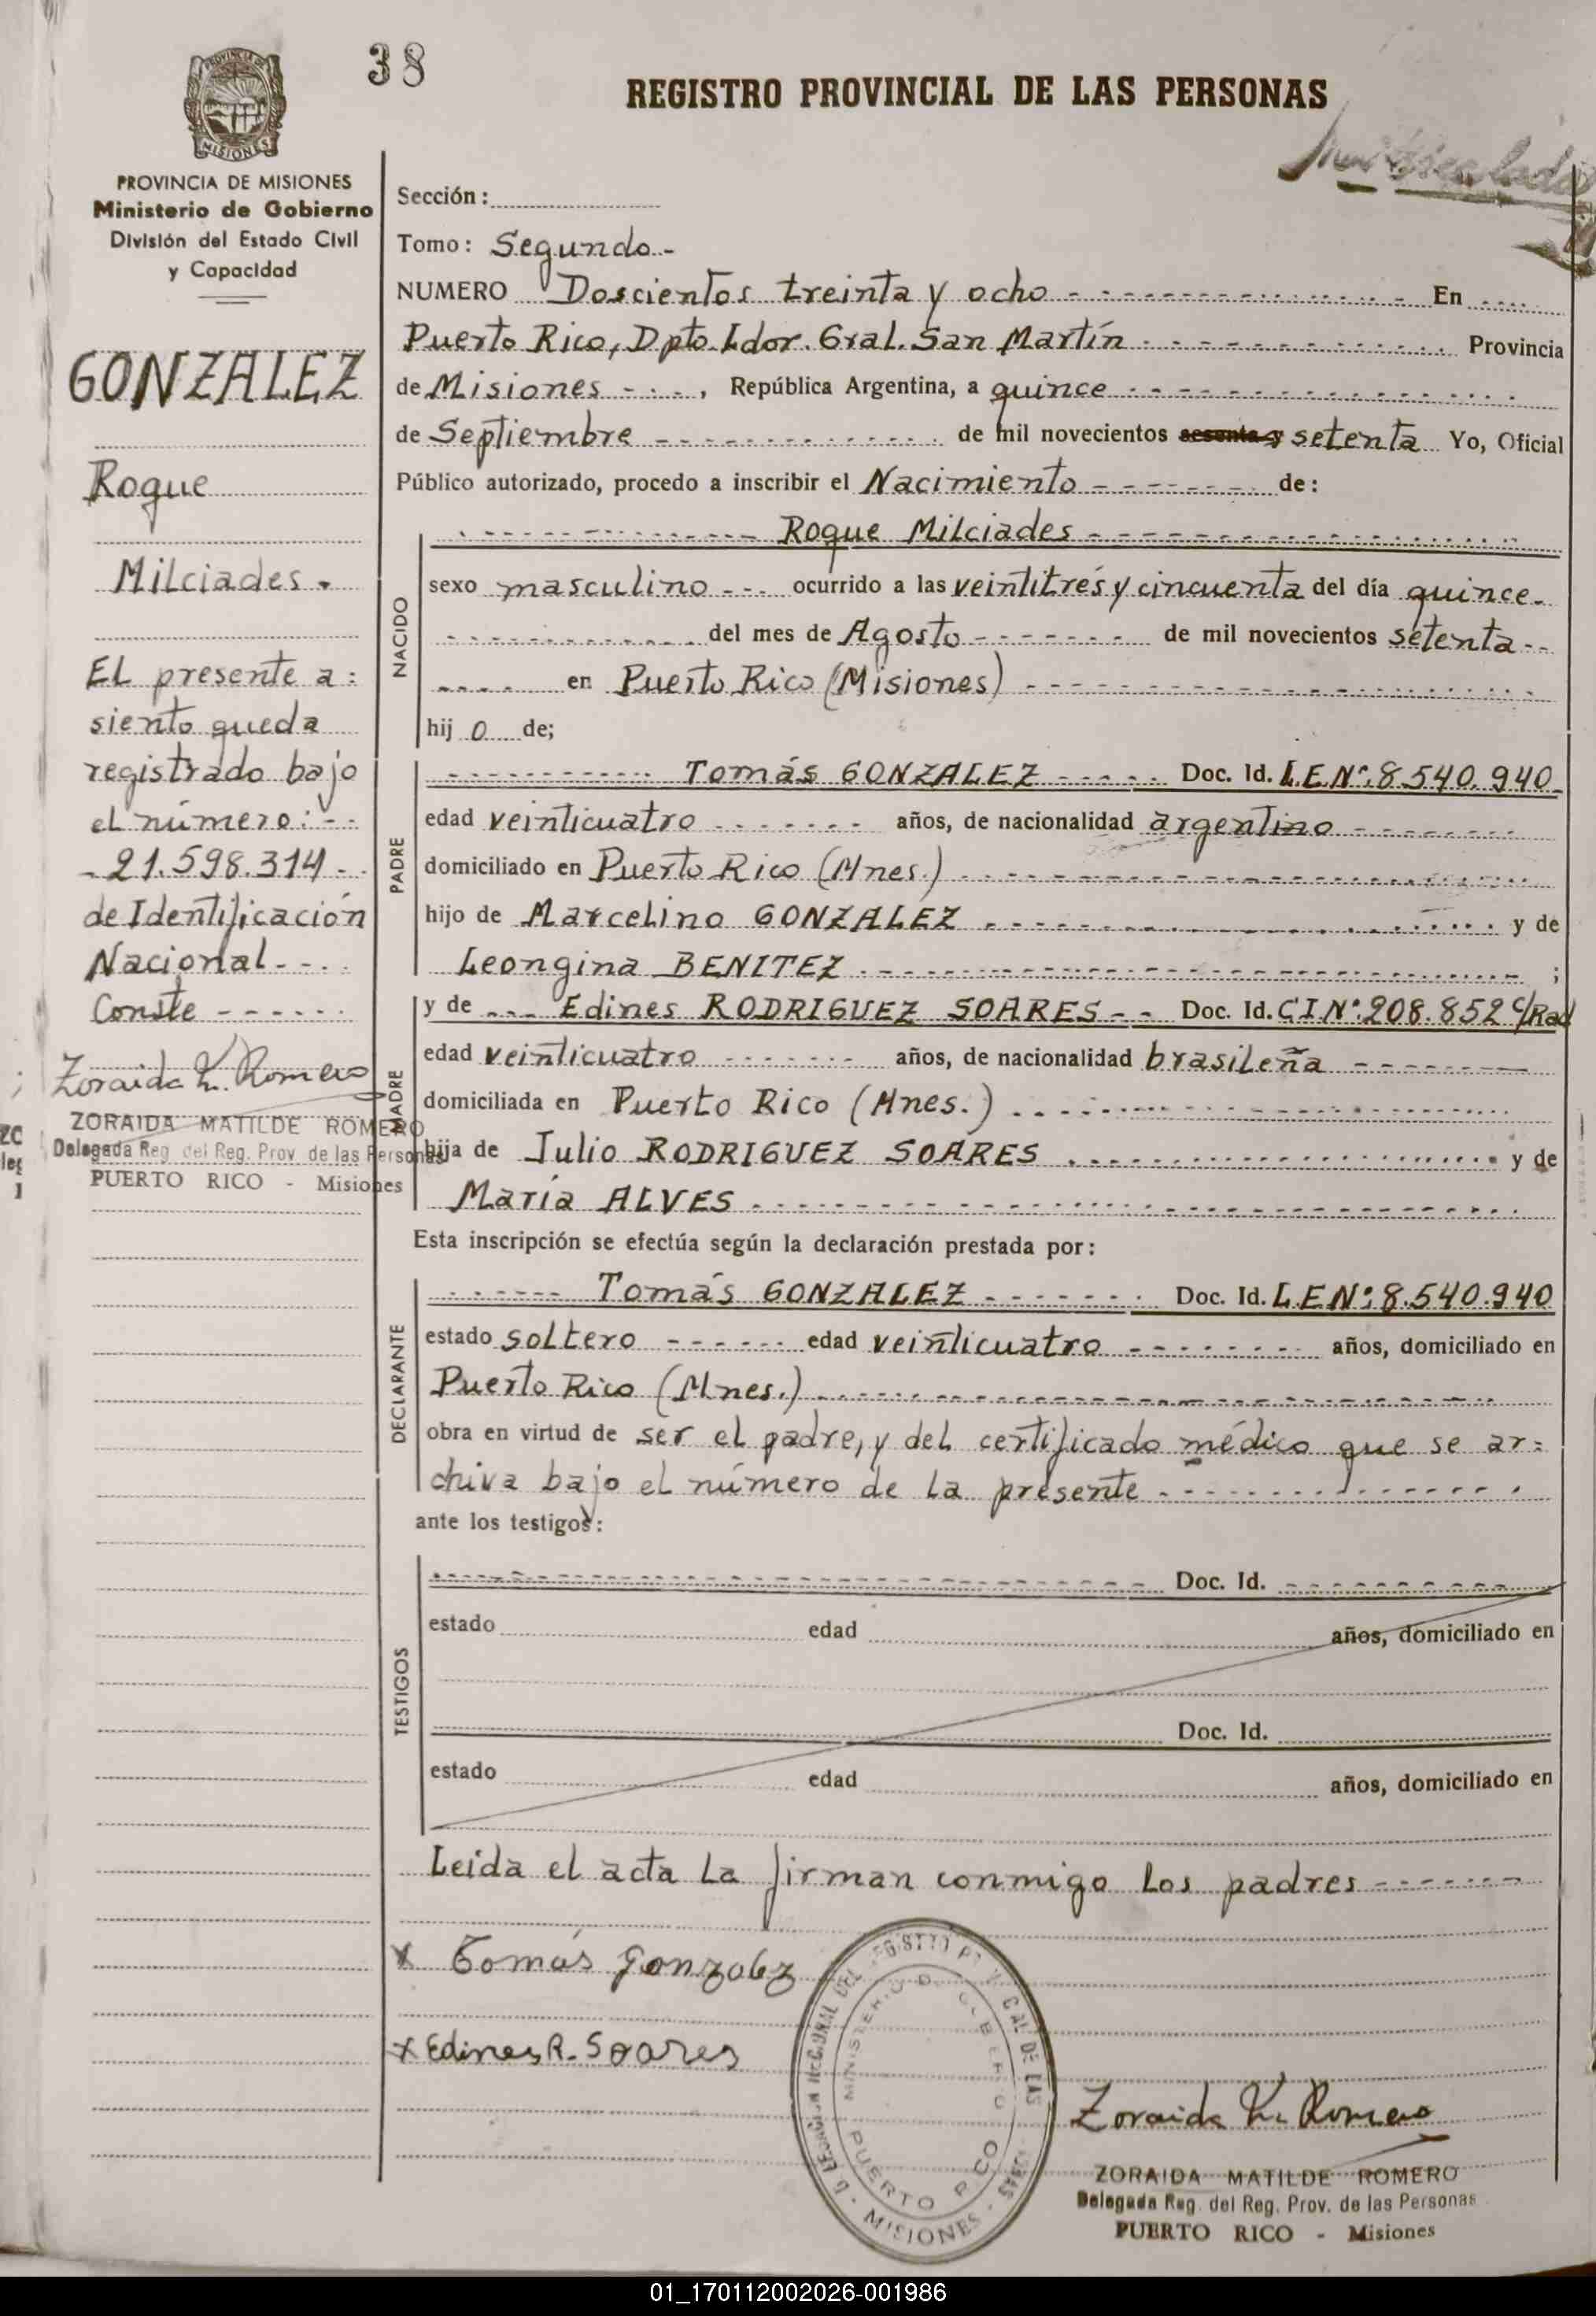 38
REGISTRO PROVINCIAL DE LAS PERSONAS
MISIONES
PROVINCIA DE MISIONES
Ministerio de Gobierno
División del Estado Civil
y Capacidad
GONZALEZ
Roque
Milciades.
El presente a:
siento queda
registrado bajo
el número:--
-21.598.314-
de Identificación
Nacional---
Conste ------
Zoraida M. Romero
ZORAIDA MATILDE ROMERO
Delegada Reg. del Reg. Prov. de las Personas
PUERTO RICO - Misiones
Sección:
Tomo: Segundo-
NUMERO Doscientos treinta y ocho - En
Puerto Rico, Dpto. Ldor. Gral. San Martín - Provincia
de Misiones - , República Argentina, a quince -
de Septiembre - de mil novecientos sesenta y setenta Yo, Oficial
Público autorizado, procedo a inscribir el Nacimiento - de:
Roque Milciades
NACIDO
sexo masculino --- ocurrido a las veintitrés y cincuenta del día quince-
del mes de Agosto - de mil novecientos setenta--
en Puerto Rico (Misiones)
hij o de;
PADRE
Tomás GONZALEZ - Doc. Id. L.E.Nº:8.540.940-
edad veinticuatro - años, de nacionalidad argentino -
domiciliado en Puerto Rico (Mnes.)
hijo de Marcelino GONZALEZ - y de
Leongina BENITEZ - ;
MADRE
y de --- Edines RODRIGUEZ SOARES-- Doc. Id. C.I.Nº:208.852 c/Rad
edad veinticuatro - años, de nacionalidad brasileña -
domiciliada en Puerto Rico (Mnes.)
hija de Julio RODRIGUEZ SOARES - y de
María ALVES
Esta inscripción se efectúa según la declaración prestada por:
DECLARANTE
Tomás GONZALEZ - Doc. Id. L.E.Nº:8.540.940
estado soltero - edad veinticuatro - años, domiciliado en
Puerto Rico (Mnes.)
obra en virtud de ser el padre, y del certificado médico que se ar=
chiva bajo el número de la presente
ante los testigos:
TESTIGOS
Doc. Id.
estado edad años, domiciliado en
Doc. Id.
estado edad años, domiciliado en
Leída el acta la firman conmigo los padres
x Tomás Gonzalez
x Edines R. Soares
MINISTERIO DE GOBIERNO
PUERTO RICO
MISIONES
Zoraida M. Romero
ZORAIDA MATILDE ROMERO
Delegada Reg. del Reg. Prov. de las Personas
PUERTO RICO - Misiones
01_170112002026-001986